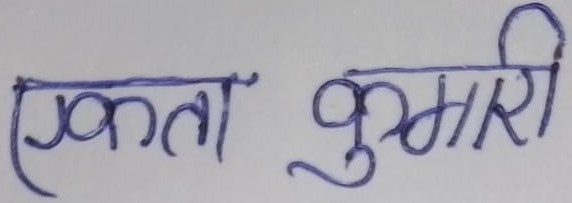 एकता कुमारी